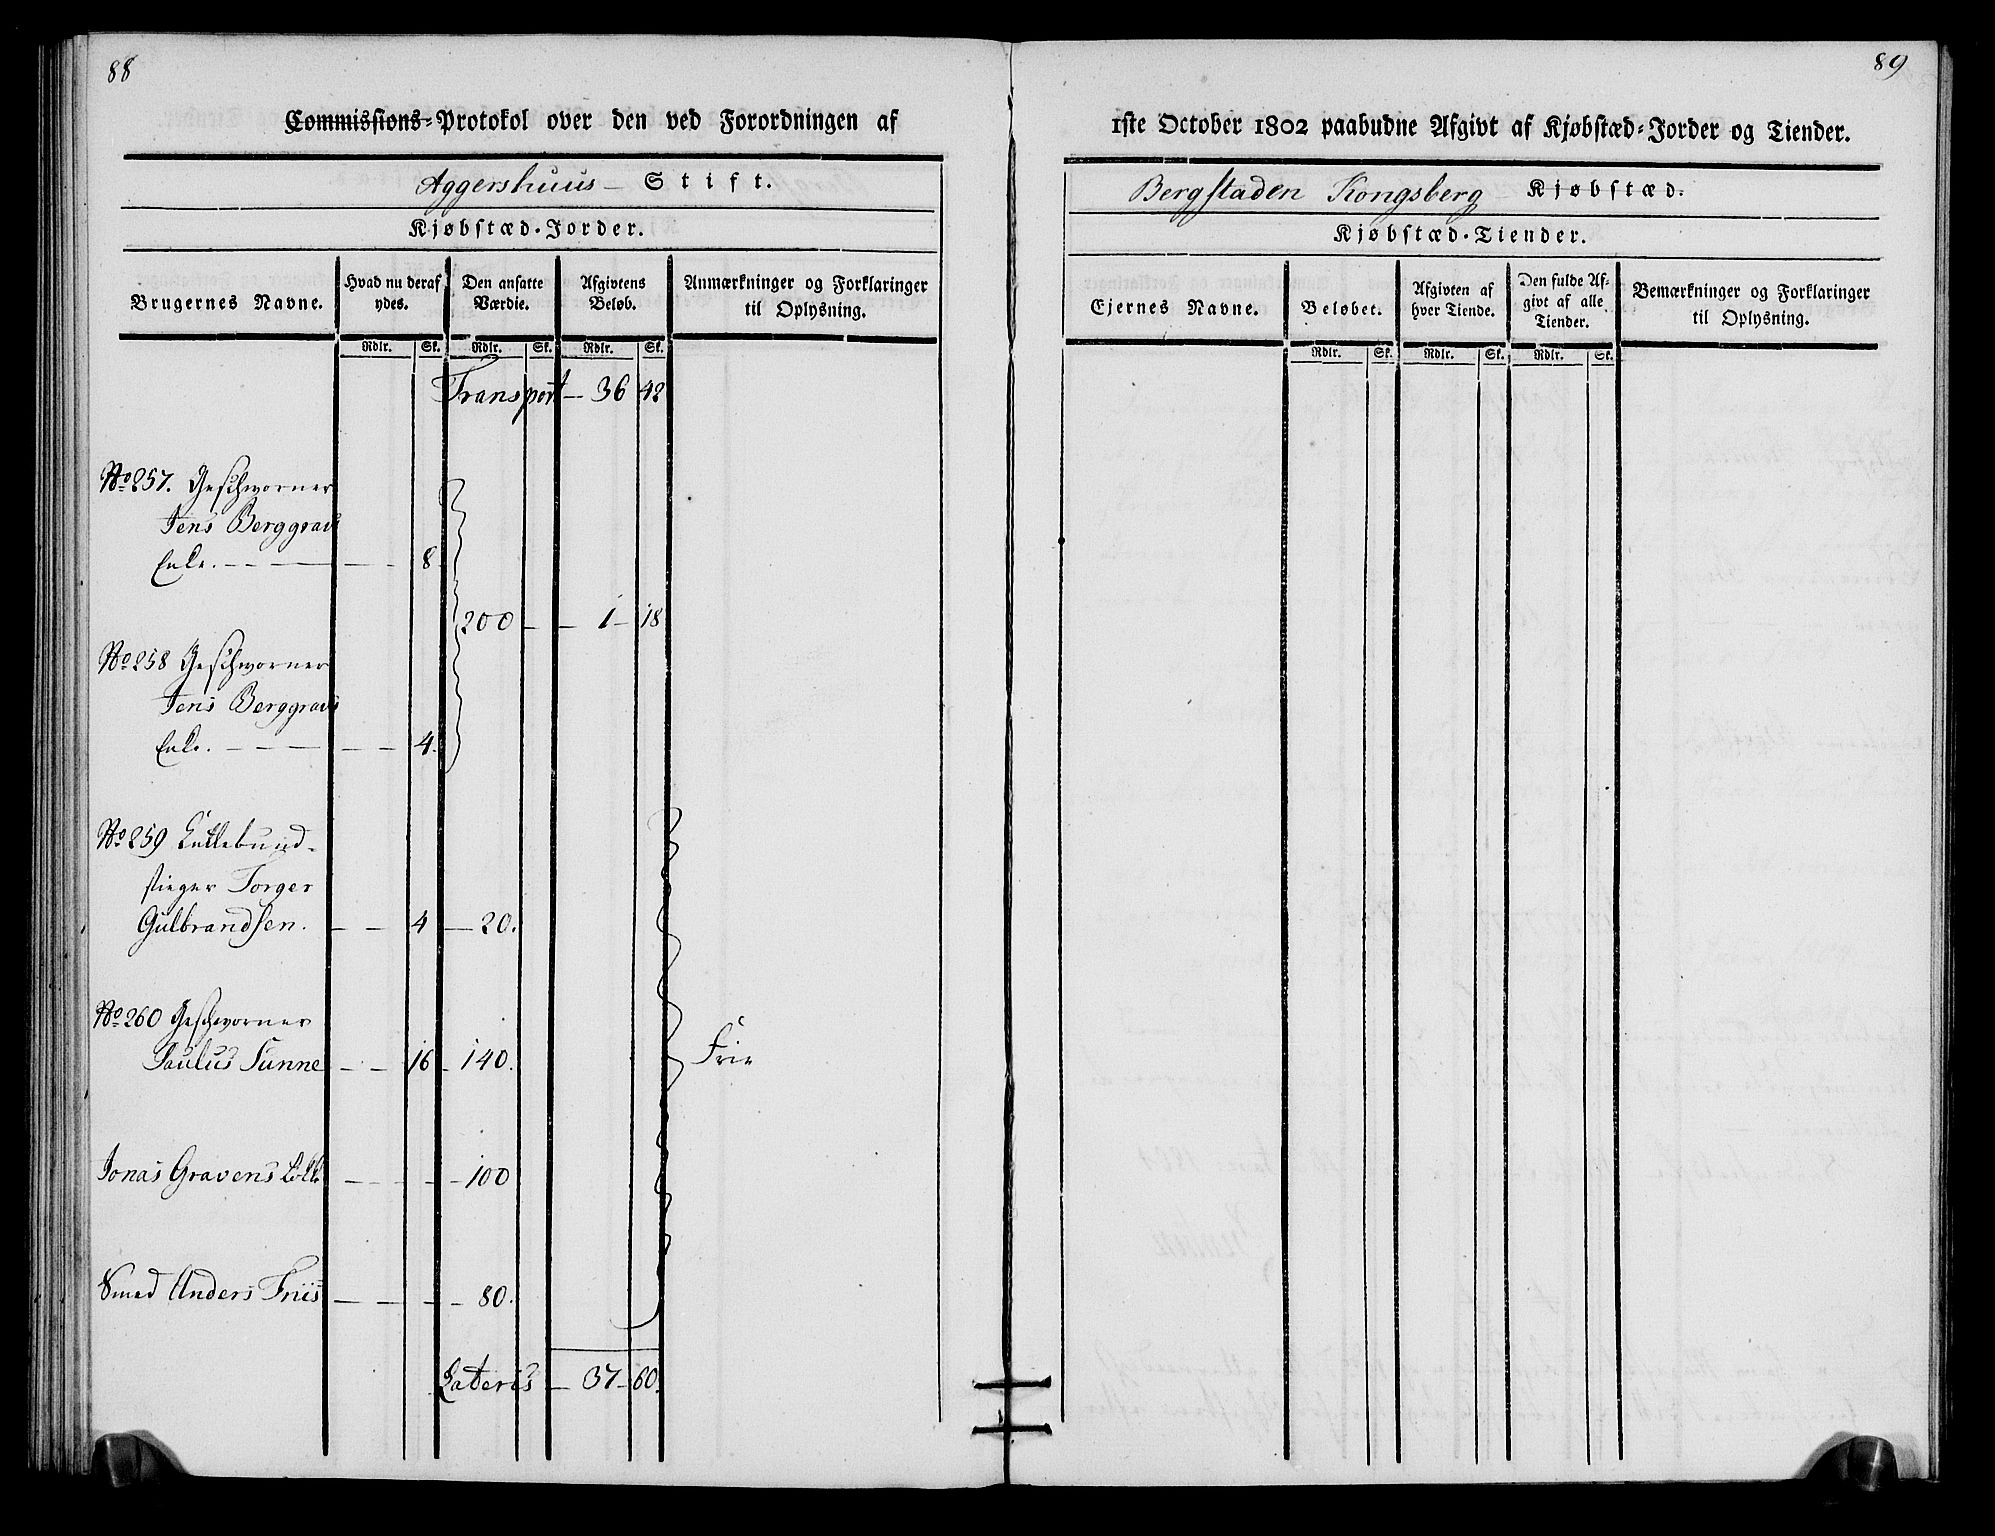 88
Commissions-Protokol over den ved Forordningen af
Aggershuus Stift.
Kjøbstæd-Jorder.
Brugernes Navne.
Hvad nu deraf ydes.
Den ansatte Værdie.
Afgivtens Beløb.
Anmærkninger og Forklaringer til Oplysning.
Rdlr. Sk. Rdlr. Sk. Rdlr. Sk.
Transport — 36 42
No 257. Geschworner
Jens Berggravs
Enke. — — — — 8
200 — — 1 — 18
No 258 Geschworner
Jens Berggravs
Enke. — — — — 4.
No 259
stieger Torger
Gulbrandsen. — — 4 — 20.
No 260 Geschworner
Paulus Sunne — — 16 — 140. Frie
Jonas Gravens Løkke — — — — 100
Smed Anders Friis — — — — 80.
Lateris — 37 — 60.
89
1ste October 1802 paabudne Afgivt af Kjøbstæd-Jorder og Tiender.
Bergstaden Kongsberg Kjøbstæd.
Kjøbstæd-Tiender.
Ejernes Navne.
Beløbet.
Afgivten af hver Tiende.
Den fulde Afgivt af alle Tiender.
Bemærkninger og Forklaringer til Oplysning.
Rdlr. Sk. Rdlr. Sk. Rdlr. Sk.